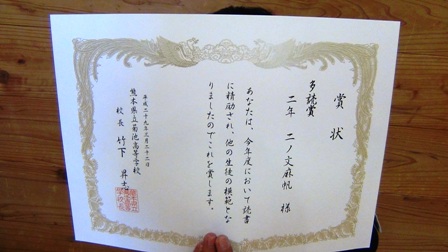 賞状
多読賞
二年 二ノ文麻帆 様
あなたは、今年度において読書
に精励され、他の生徒の模範とな
りましたのでこれを賞します。
平成二十九年三月二十二日
熊本県立菊池高等学校
校長 竹下